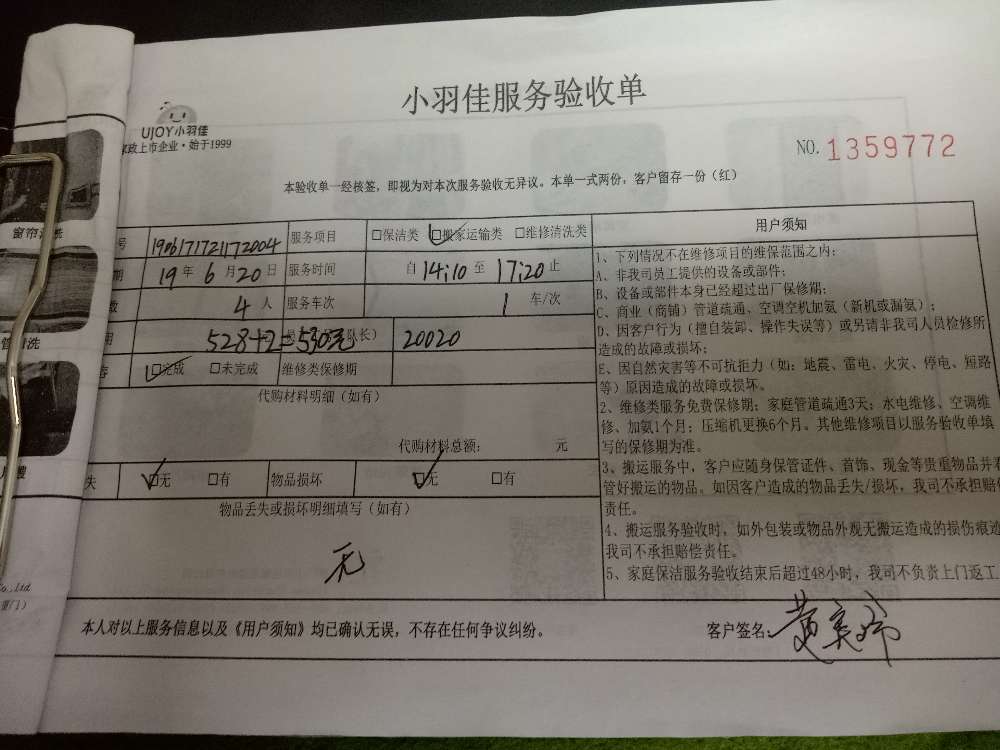 小羽佳服务验收单
UJOY小羽佳
家政上市企业·始于1999
NO. 1359772
本验收单一经核签，即视为对本次服务验收无异议。本单一式两份，客户留存一份（红）
号 1906171721172004 服务项目 □保洁类 □搬家运输类 □维修清洗类
期 19 年 6 月 20 日 服务时间 自 14:10 至 17:20 止
数 4 人 服务车次 1 车/次
用 528+2=530元 队长） 20020
容 □完成 □未完成 维修类保修期
代购材料明细（如有）
代购材料总额： 元
失 □无 □有 物品损坏 □无 □有
物品丢失或损坏明细填写（如有）
无
用户须知
1、下列情况不在维修项目的维保范围之内：
A、非我司员工提供的设备或部件；
B、设备或部件本身已经超过出厂保修期；
C、商业（商铺）管道疏通、空调空机加氨（新机或漏氨）；
D、因客户行为（擅自装卸、操作失误等）或另请非我司人员检修所
造成的故障或损坏；
E、因自然灾害等不可抗拒力（如：地震、雷电、火灾、停电、短路
等）原因造成的故障或损坏。
2、维修类服务免费保修期：家庭管道疏通3天；水电维修、空调维
修、加氨1个月；压缩机更换6个月。其他维修项目以服务验收单填
写的保修期为准。
3、搬运服务中，客户应随身保管证件、首饰、现金等贵重物品并看
管好搬运的物品。如因客户造成的物品丢失/损坏，我司不承担赔偿
责任。
4、搬运服务验收时，如外包装或物品外观无搬运造成的损伤痕迹
我司不承担赔偿责任。
5、家庭保洁服务验收结束后超过48小时，我司不负责上门返工
本人对以上服务信息以及《用户须知》均已确认无误，不存在任何争议纠纷。
客户签名：黄美
窗帘清洗
管清洗
Co.,Ltd
厦门）